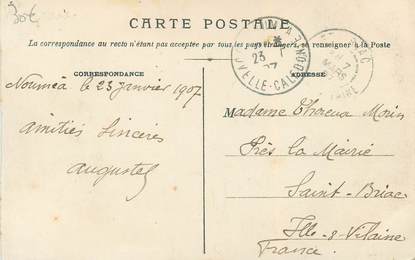 30€
CARTE POSTALE
La correspondance au recto n'étant pas acceptée par tous les pays étrangers, se renseigner à la Poste
CORRESPONDANCE
ADRESSE
23
07
Nouméa le 23 janvier 1907
amitiés sincères
Madame Thoreux Morin
Près la Mairie
Saint-Briac
Ille-&-Vilaine
France